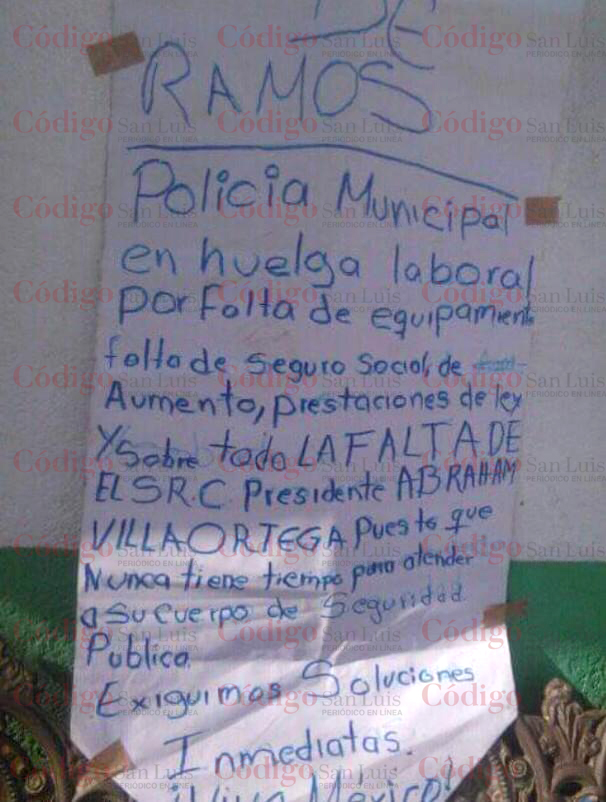 DE
RAMOS
Policia Municipal
en huelga laboral
por folta de equipamiento
folta de seguro Social, de
Aumento, prestaciones de ley
Y Sobre todo LA FALTA DE
EL SR.C. Presidente ABRAHAM
VILLA ORTEGA puesto que
Nunca tiene tiempo para atender
a su cuerpo de Seguridad
Publica.
Exiguimos Soluciones
Inmediatas.
¡Viva México!
Código San Luis
PERIÓDICO EN LÍNEA